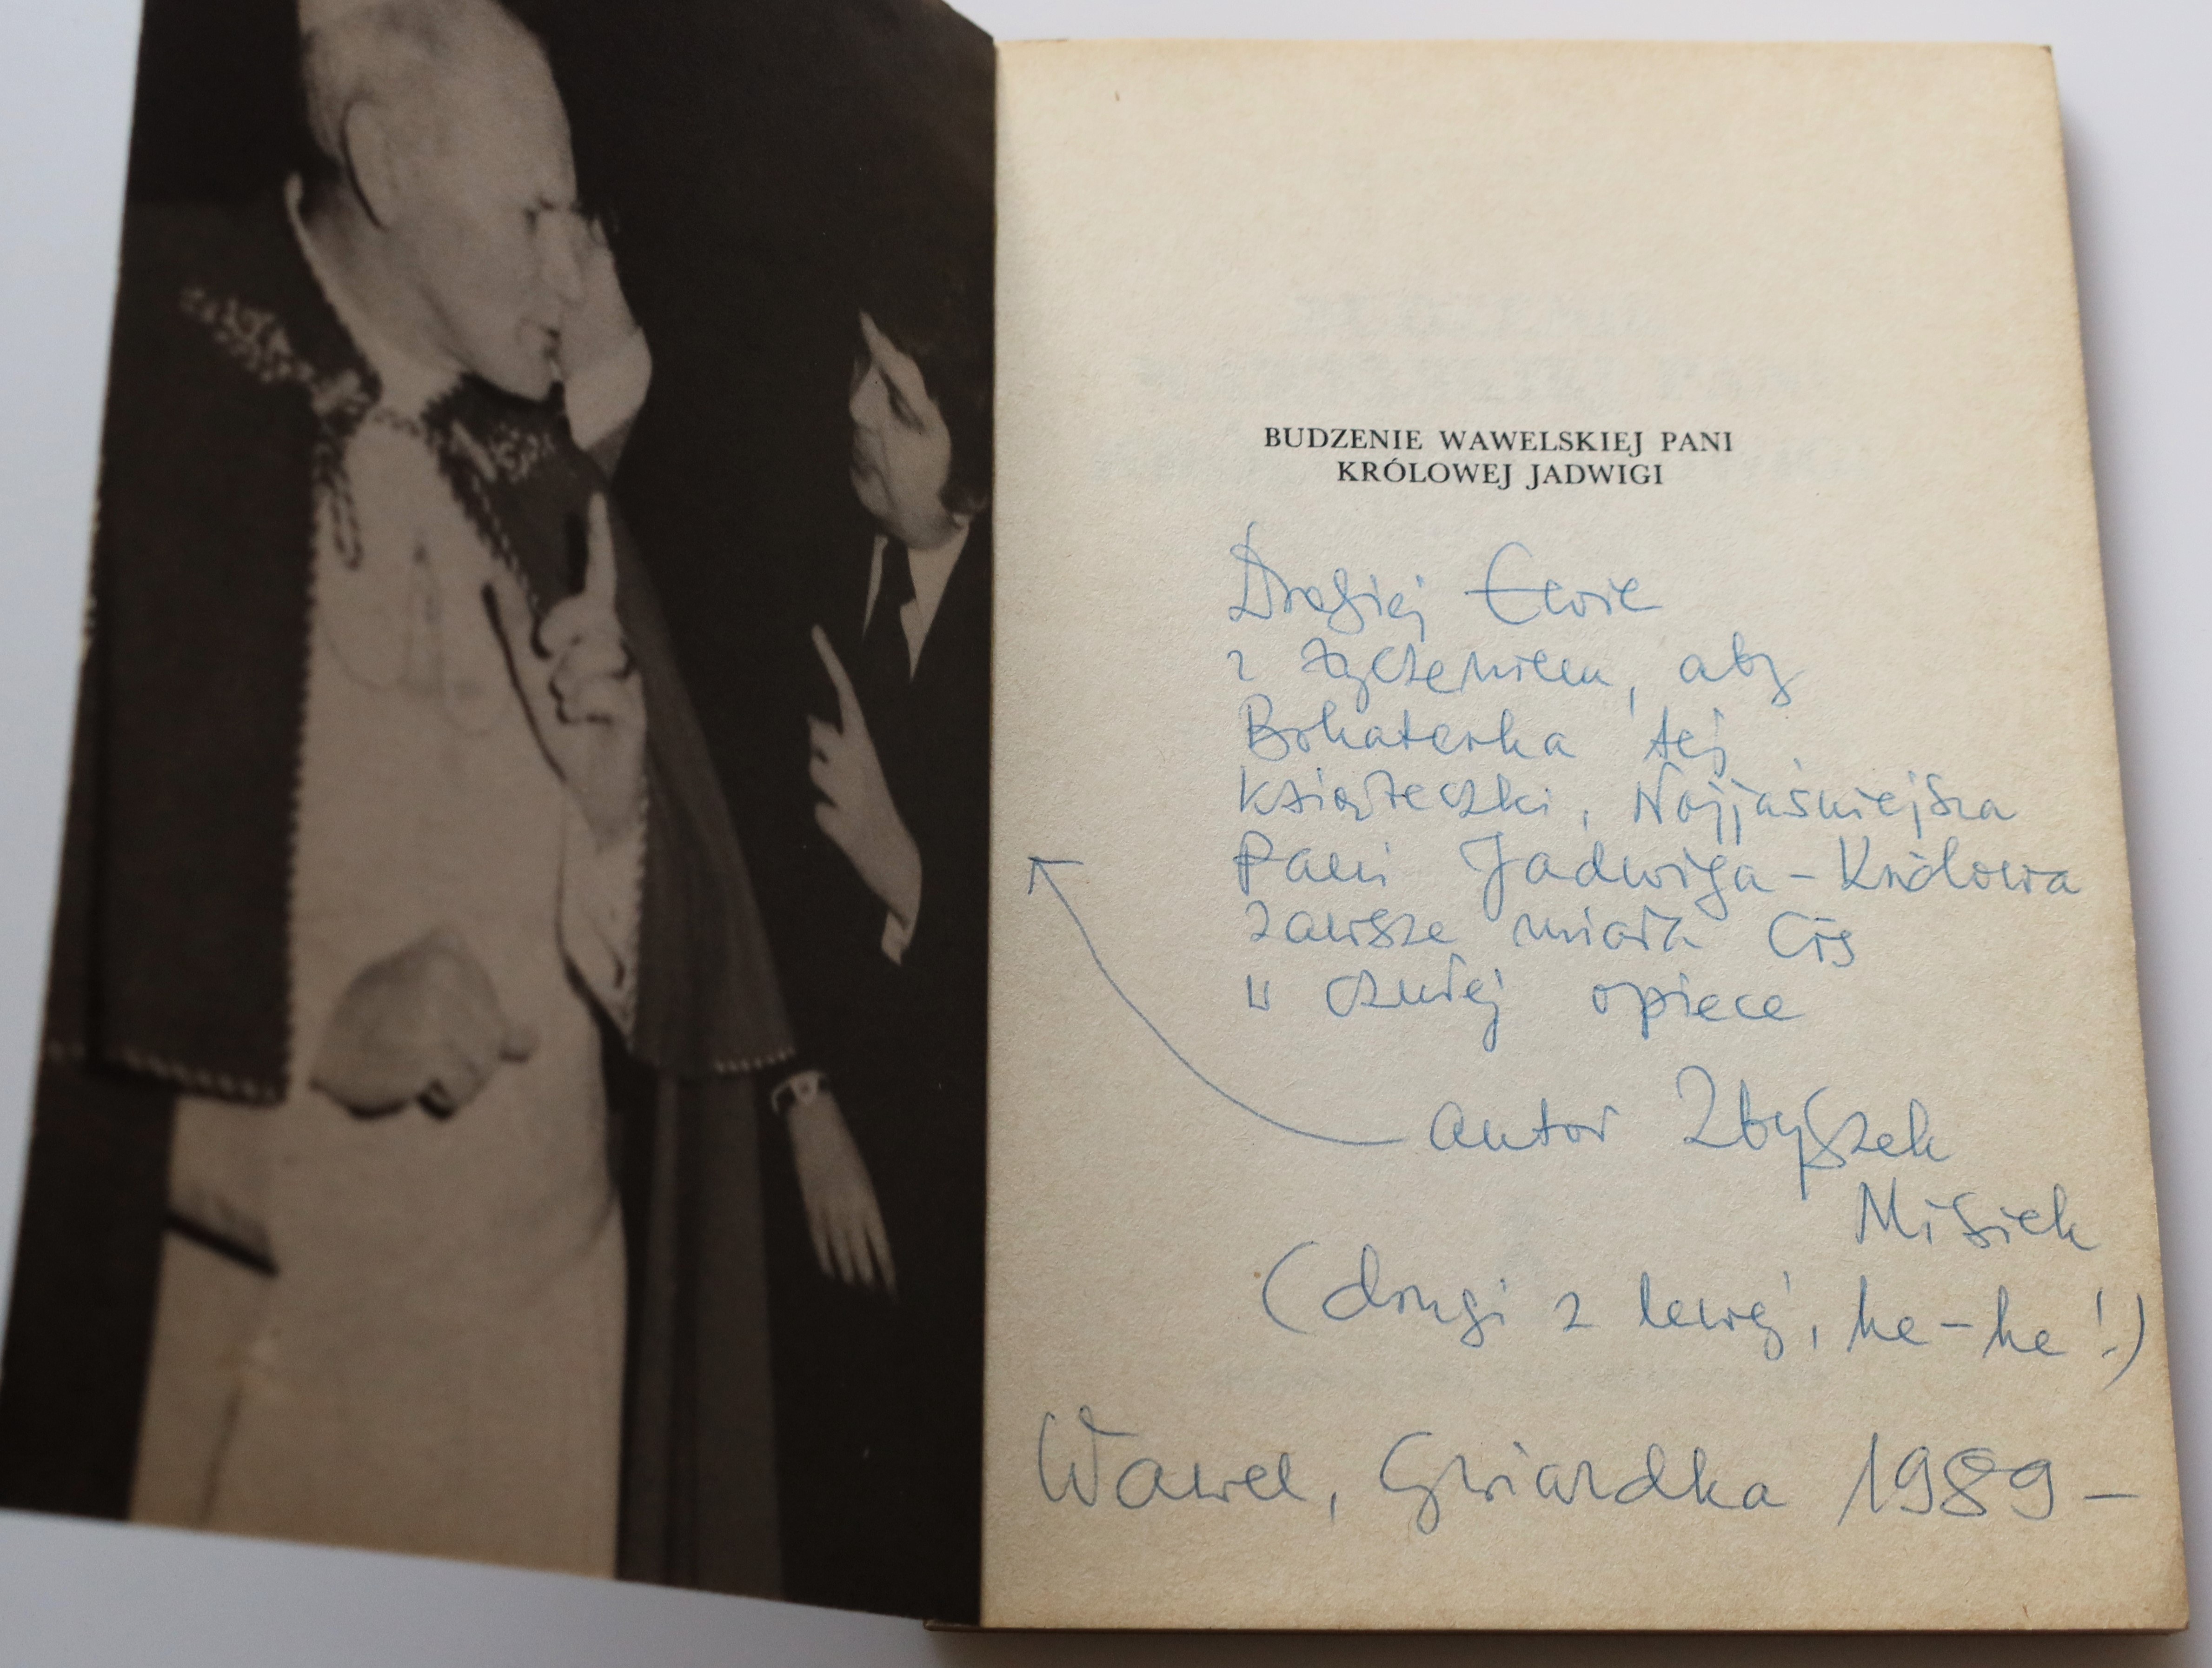 BUDZENIE WAWELSKIEJ PANI
KRÓLOWEJ JADWIGI
Drogiej Ewie
z życzeniem, aby
Bohaterka tej
książeczki, Najjaśniejsza
Pani Jadwiga-Królowa
zawsze miała Cię
w czułej opiece
autor Zbyszek
Misiek
(drugi z lewej, he-he!)
Wawel, Gwiazdka 1989-